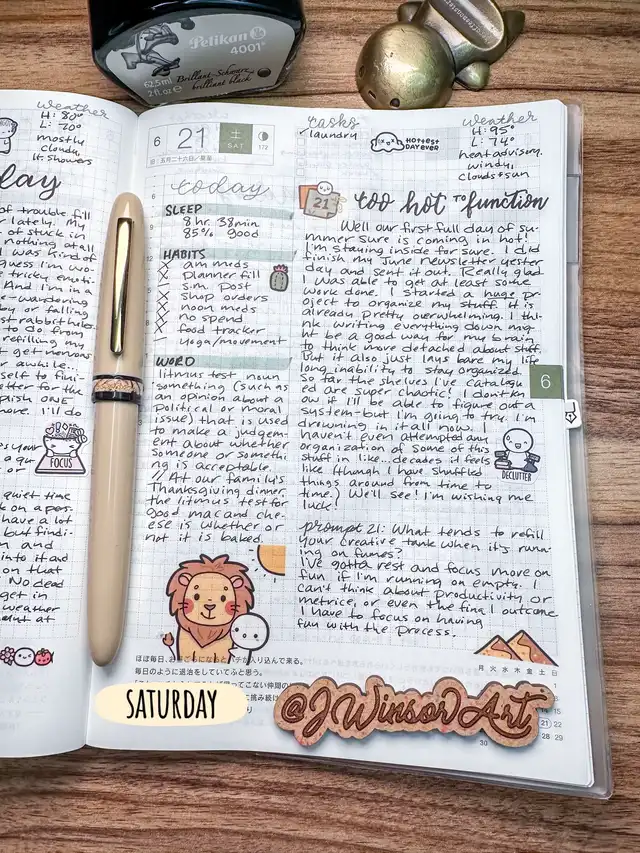 Pelikan
4001®
62.5ml
2 fl.oz e
Brillant-Schwarz
brilliant black
weather
H: 80°
L: 70°
mostly
cloudy,
lt. showers
day
of trouble fill
lately. My
of stuck in
nothing at all
I was kind of
guess I'm wo-
e tricky emoti-
And I'm ing
e-wandering
by or falling
st rabbit holes
to do from
refilling my
get nervous
awhile...
self to fini-
letter for the
plish ONE
more. I'll do
FOCUS
quiet time
k on a pers-
have a lot
but findi-
m and
into it and
on that
No dead
get in
weather
6
21
土
SAT
172
旧 五月二十六日／星座
today
SLEEP
8 hr 38min
85% good
HABITS
am meds
planner fill
s.m. post
shup orders
noon meds
no spend
food tracker
yoga/movement
WORD
litmus test noun
something (such as
an opinion about a
political or moral
issue) that is used
to make a judgem-
ent about whether
someone or somethi
ng is acceptable.
// At our family's
Thanksgiving dinner,
the litmus test for
good mac and che-
ese is whether or
not it is baked.
tasks
laundry
HOTTEST
DAY EVER
weather
H: 95°
L: 74°
heat advisory
windy,
clouds+sun
21
too hot to function
Well our first full day of su-
mmer sure is coming in hot!
I'm staying inside for sure. I did
finish my June newsletter yester
day and sent it out. Really glad
I was able to get at least some
work done. I started a huge pr
oject to organize my stuff. It is
already pretty overwhelming. I thi-
nk writing everything down mig-
ht be a good way for my brain
to think more detached about stuff.
But it also just lays bare my life
long inability to stay organized.
So far the shelves I've catalogu
ed are super chaotic! I don't kn
ow if I'll be able to figure out a
system-but I'm going to try. I'm
drowning in it all now.
haven't even attempted any
organization of some of this
stuff in like... decades it feels
like (though I have shuffled
things around from time to
time.) We'll see! I'm wishing me
luck!
6
DECLUTTER
prompt 21: What tends to refill
your creative tank when it's runn-
ing on fumes?
I've gotta rest and focus more on
fun if I'm running on empty. I
can't think about productivity or
metrics, or even the final outcome
I have to focus on having
fun with the process.
月 火 水 木 金 土 日
1
15
21 22
28 29
30
SATURDAY
@JWinsorArt